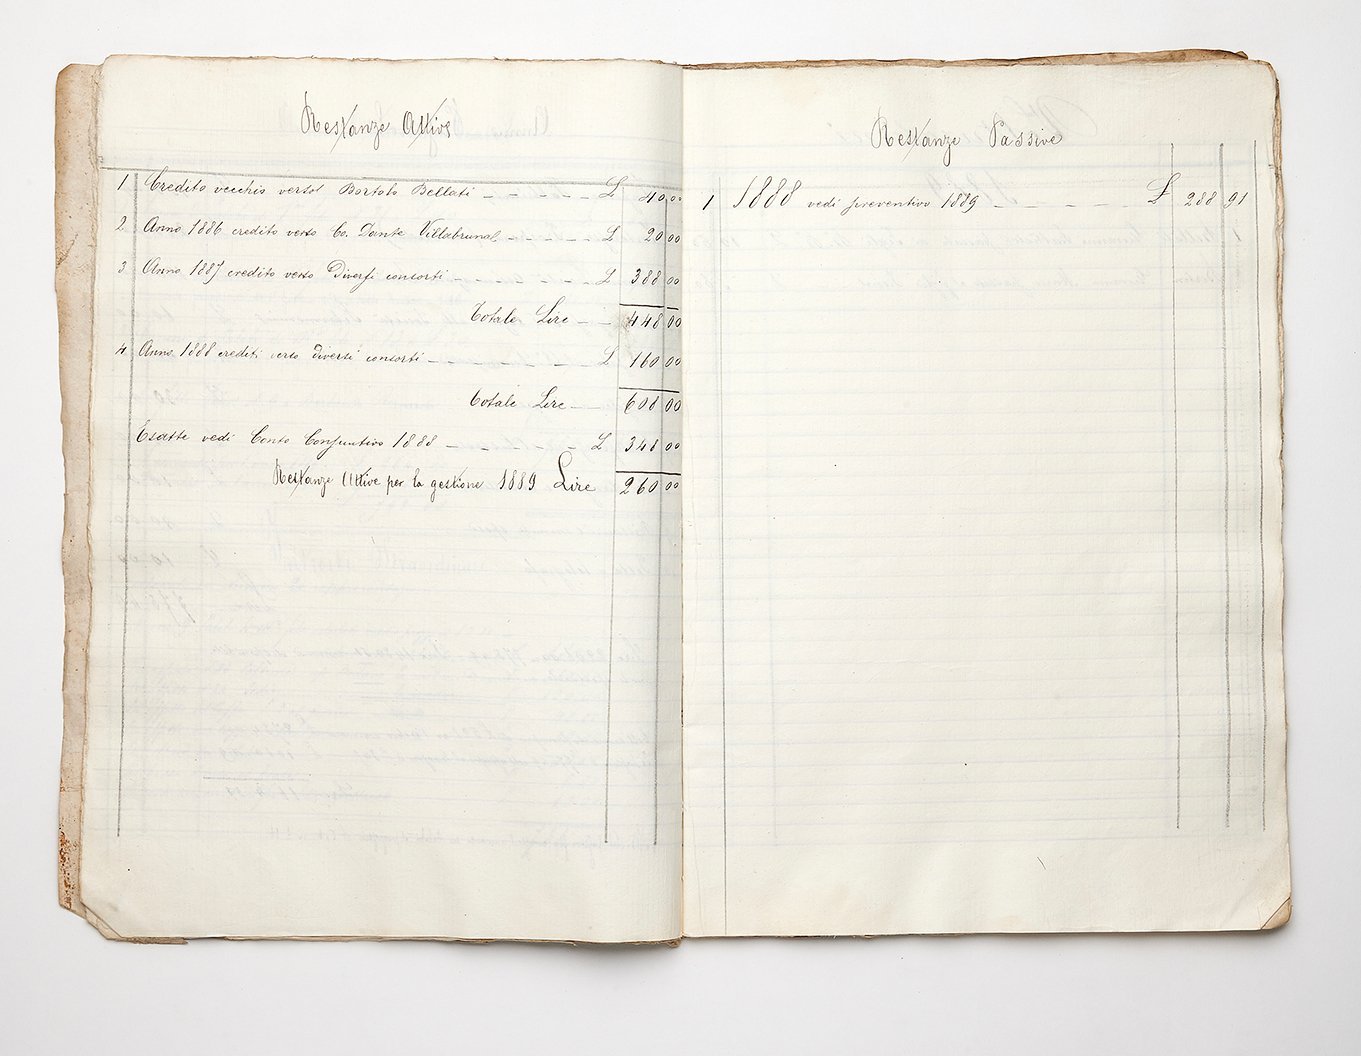 Restanze Attive
1 Credito vecchio verso Bortolo Bellati L 40 00
2 Anno 1886 credito verso Co. Dante Villabruna L 20 00
3 Anno 1887 credito verso Diversi consorti L 388 00
Totale Lire 448 00
4 Anno 1888 crediti verso diversi consorti L 160 00
Totale Lire 608 00
Esatte vedi Conto Consuntivo 1888 L 348 00
Restanze Attive per la gestione 1889 Lire 260 00
Restanze Passive
1 1888 vedi preventivo 1889 L 288 91